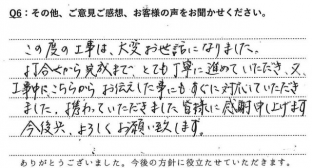 Q6：その他、ご意見ご感想、お客様の声をお聞かせください。
この度の工事は、大変お世話になりました。
打合せから完成まで、とても丁寧に進めていただき、又、
工事中にこちらからお伝えした事にもすぐに対応していただき
ました。携わっていただきました皆様に感謝申し上げます
今後共、よろしくお願い致します。
ありがとうございました。今後の方針に役立たせていただきます。